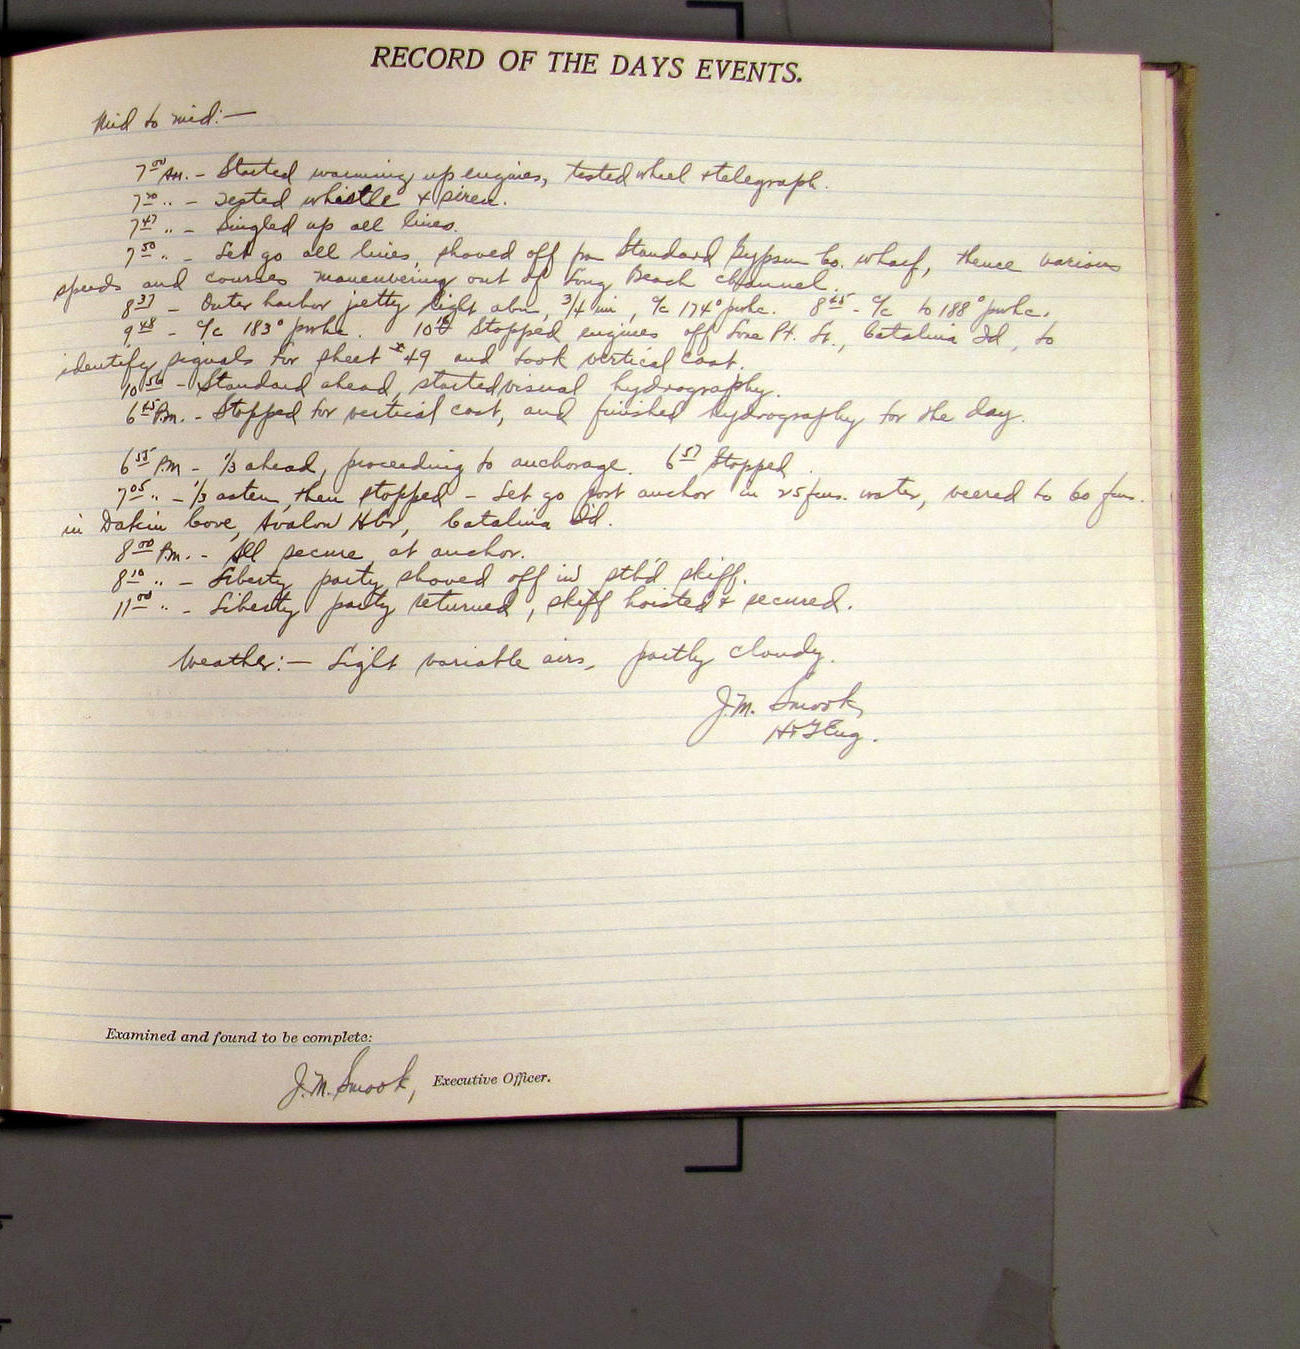 RECORD OF THE DAYS EVENTS.
Mid to mid:—
7 00 AM. - Started warming up engines, tested wheel & telegraph.
7 30 " - Tested whistle & siren.
7 47 " - Singled up all lines.
7 50 " - Let go all lines, shoved off fm Standard Gypsum Co. wharf, thence various
speeds and courses maneuvering out of Long Beach channel.
8 37 - Outer harbor jetty light abm, 3/4 mi, c/c 174° pwhc. 8 45 - c/c to 188° pwhc.
9 48 - c/c 183° pwhc. Stopped engines off Lone Pt. Lt., Catalina Id, to
identify signals for sheet #49 and took vertical cast.
10 56 - Standard ahead, started visual hydrography.
6 45 P.m. - Stopped for vertical cast, and finished hydrography for the day.
6 55 PM - 1/3 ahead, proceeding to anchorage. 6 57 Stopped.
7 05 " - 1/3 astern, then stopped - Let go port anchor in 25 fms. water, veered to 60 fms.
in Dakin Cove, Avalon Hbr, Catalina Id.
8 00 P.m. - All secure at anchor.
8 10 " - Liberty party shoved off in stb'd skiff.
11 00 " - Liberty party returned, skiff hoisted & secured.
Weather:— Light variable airs, partly cloudy.
J.M. Smook,
H&GEng.
Examined and found to be complete:
J.M. Smook, Executive Officer.